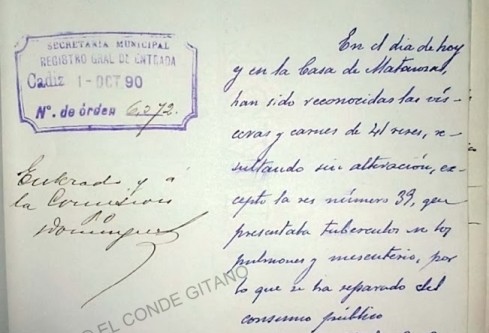 SECRETARIA MUNICIPAL
REGISTRO GRAL DE ENTRADA
Cadiz 1-OCT 90
N.º de órden 6,072.
Enterado y á
la Comision
P.O
Dominguez
En el dia de hoy
y en la Casa de Matanza,
han sido reconocidas las vis-
ceras y carnes de 41 reses, re-
sultando sin alteración, ex-
cepto la res número 39, que
presentaba tuberculos en los
pulmones y mesenterio, por
lo que se ha separado del
consumo público
EL CONDE GITANO